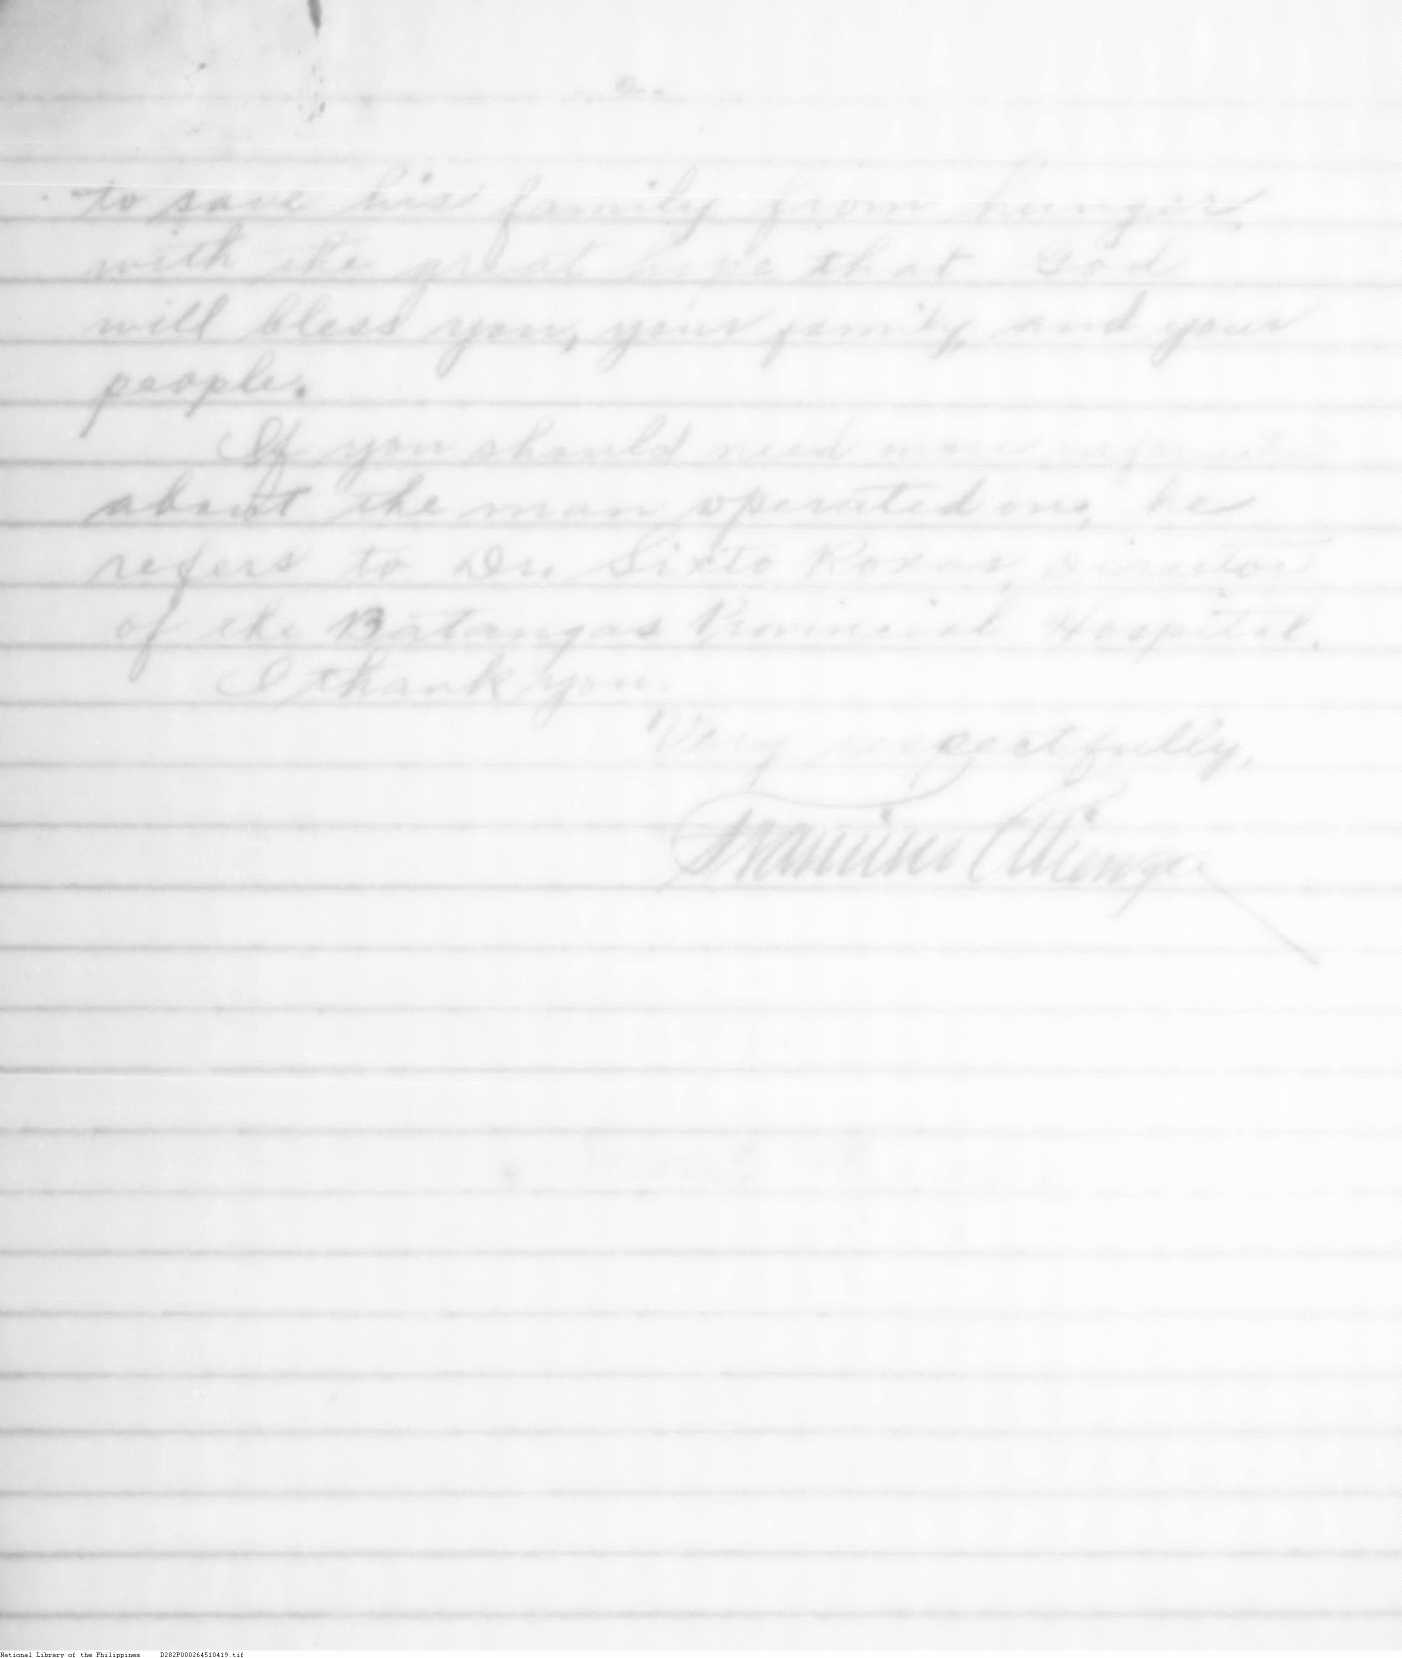 to save his family from hunger,
with the great hope that God
will bless you, your family, and your
people.
If you should need more
about the man operated on, he
refers to Dr. Sixto Roxas, Director
of the Batangas Provincial Hospital.
I thank you.
Very respectfully,
National Library of the Philippines D282P000264510419.tif